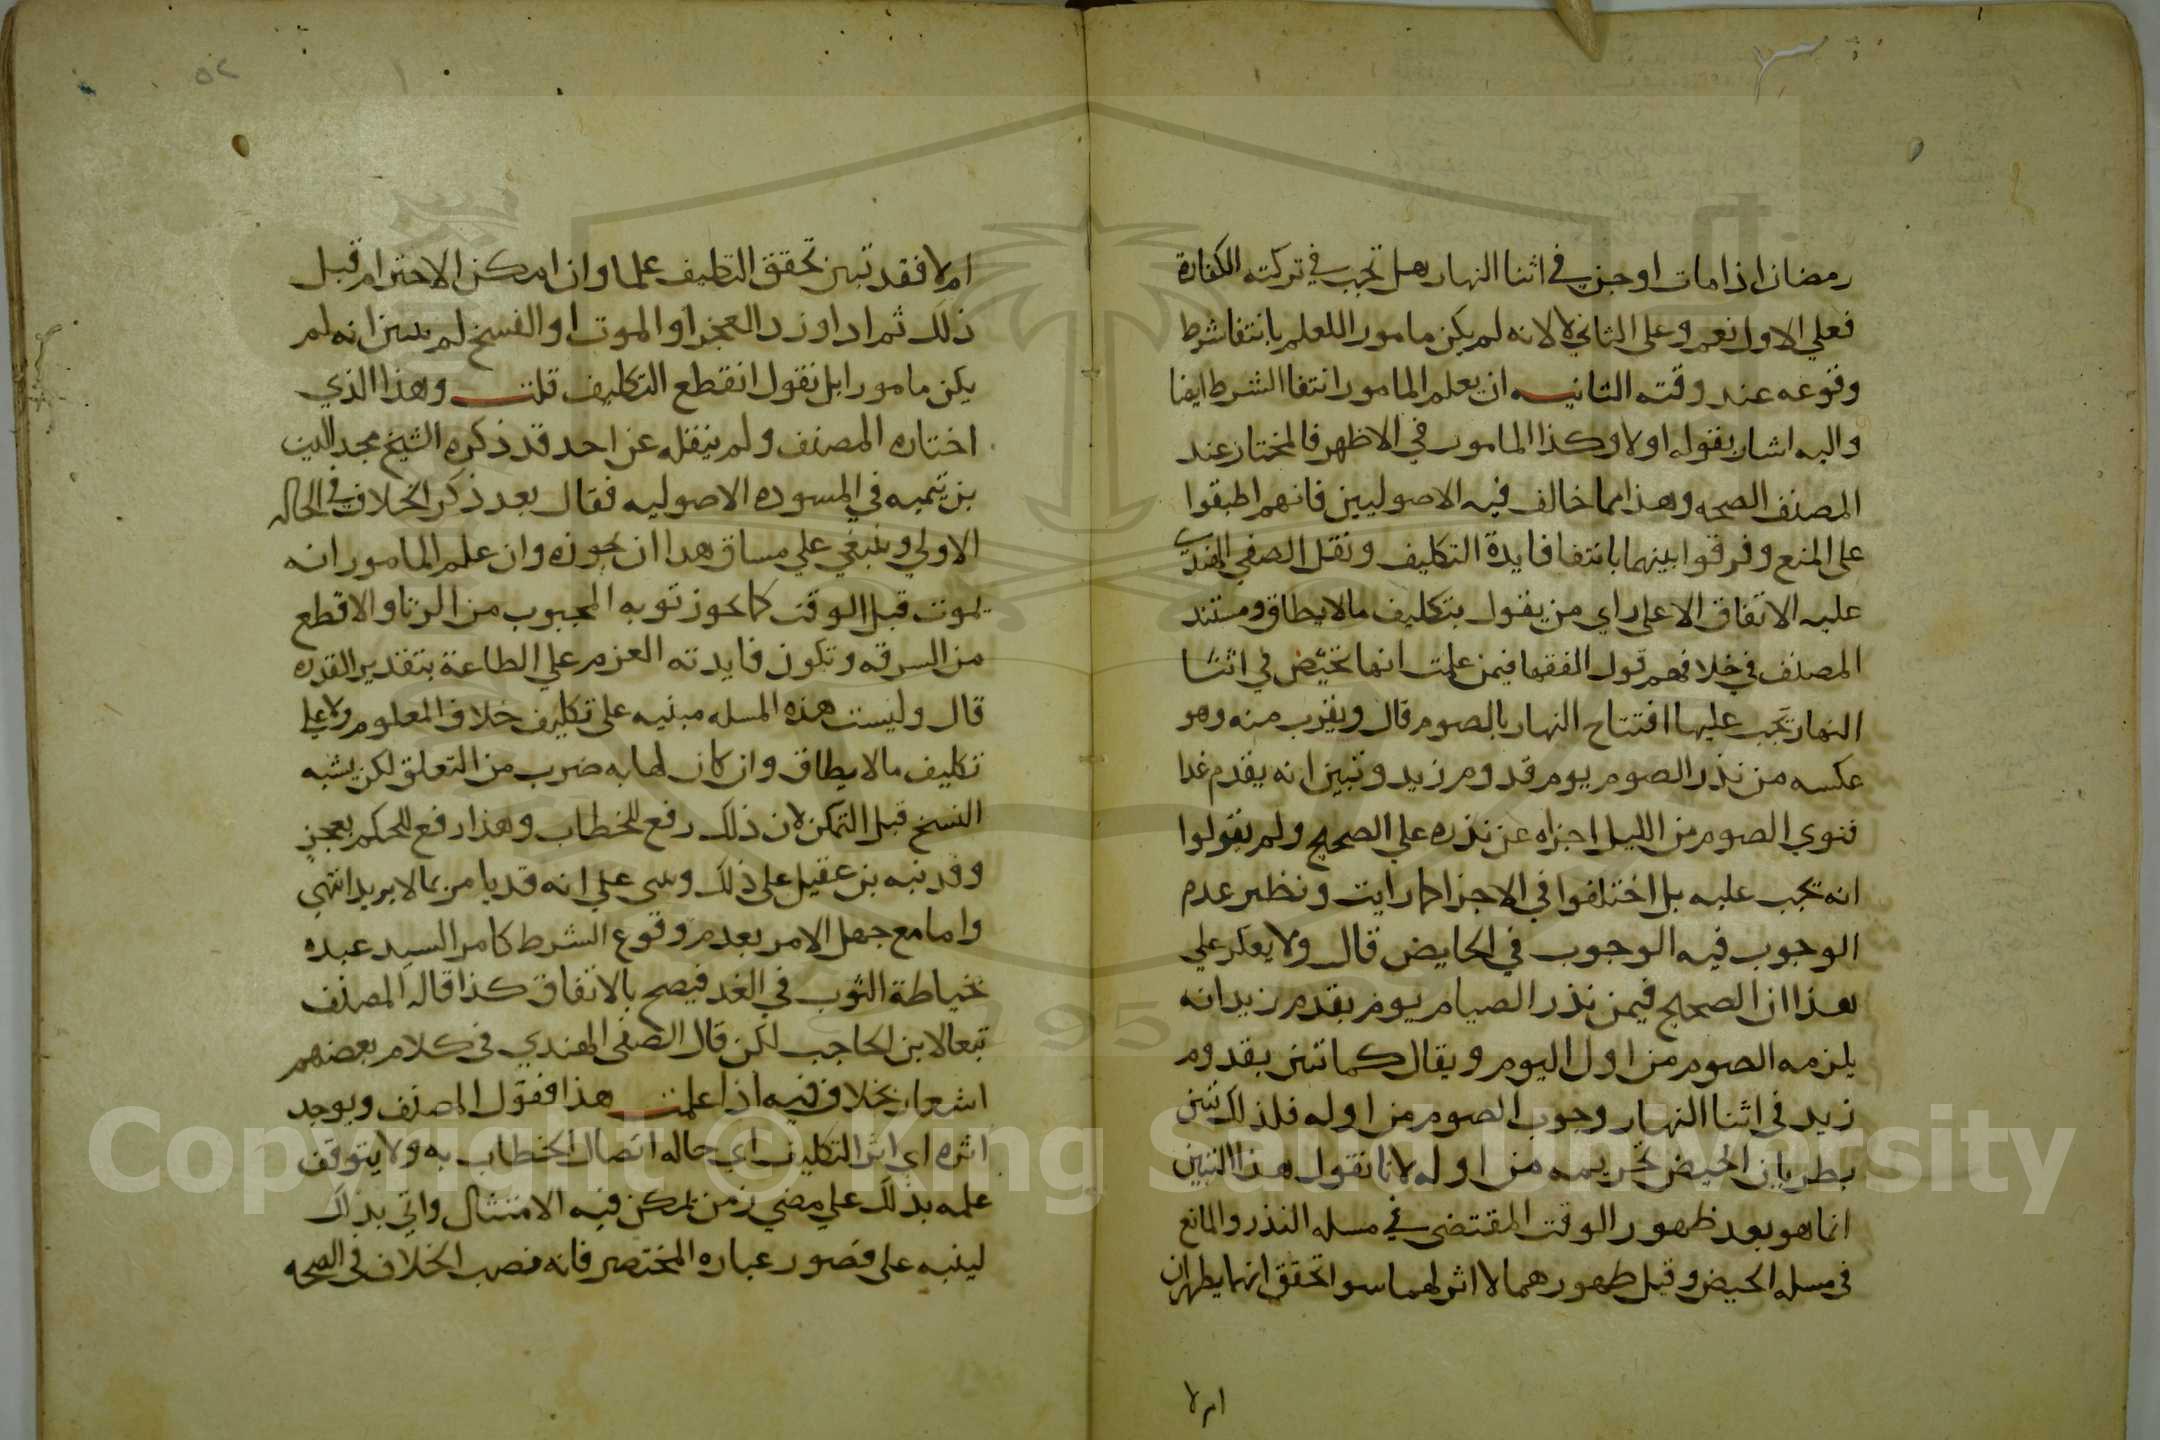 رمضان اذا مات او جن في اثنا النهار هل تجب في تركته الكفارة
فعلي الاول نعم وعلى الثاني لا لانه لم يكن مامورا للعلم بانتفا شرط
وقوعه عند وقته الثانيه ان يعلم المامور انتفا الشرط ايضا
واليه اشار بقوله اولا وكذا المامور في الاظهر فالمختار عند
المصنف الصحه وهذا مما خالف فيه الاصوليين فانهم اطبقوا
على المنع وفرقوا بينهما بانتفا فايدة التكليف ونقل الصفي الهندي
عليه الاتفاق الا على راي من يقول بتكليف مالا يطاق ومستند
المصنف في خلافهم قول الفقها فيمن علمت انها تحيض في اثنا
النهار تجب عليها افتتاح النهار بالصوم قال ويقرب منه وهو
عكسه من نذر الصوم يوم قدوم زيد وتبين انه يقدم غدا
فنوي الصوم من الليل اجزاه عن نذره علي الصحيح ولم يقولوا
انه تجب عليه بل اختلفوا في الاجزا كما رايت ونظير عدم
الوجوب فيه الوجوب في الحايض قال ولا يعكر علي
هذا ان الصحيح فيمن نذر الصيام يوم يقدم زيد انه
يلزمه الصوم من اول اليوم ويقال كما تبين بقدوم
زيد في اثنا النهار وجوب الصوم من اوله فلذلك تبين
بطريان الحيض تحريمه من اوله لانا نقول هذا التبين
انما هو بعد ظهور الوقت المقتضى في مسله النذر والمانع
في مسله الحيض وقبل ظهورهما لا اثر لهما سوا تحقق انهما يظهران
ام لا
ام لا فقد تبين تحقق التكليف علما وان امكن الاحترام قبل
ذلك ثم اذا ورد العجز او الموت او الفسخ لم يتبين انه لم
يكن مامورا بل نقول انقطع التكليف قلت وهذا الذي
اختاره المصنف ولم ينقله عن احد قد ذكره الشيخ مجد الدين
بن تيميه في المسوده الاصوليه فقال بعد ذكر الخلاف في الحاله
الاولي وينبغي علي مساق هذا ان يجوزه وان علم المامور انه
يموت قبل الوقت كما يجوز توبه المجبوب من الزنا والاقطع
من السرقه وتكون فايدته العزم علي الطاعة بتقدير القدره
قال وليست هذه المسله مبنيه على تكليف خلاف المعلوم ولا علي
تكليف مالا يطاق وان كان لها به ضرب من التعلق لكن يشبه
النسخ قبل التمكن لان ذلك رفع للخطاب وهذا رفع للحكم بعجز
وقد نبه بن عقيل على ذلك وبني علي انه قد يامر بما لا يريد انتهى
واما مع جهل الامر بعدم وقوع الشرط كامر السيد عبده
بخياطة الثوب في الغد فيصح بالاتفاق كذا قاله المصنف
تبعا لابن الحاجب لكن قال الصفي الهندي في كلام بعضهم
اشعار بخلاف فيه اذا علمت هذا فقول المصنف ويوجد
اثره اي اثر التكليف اي حاله اتصال الخطاب به ولا يتوقف
علمه بذلك علي مضي زمن يمكن فيه الامتثال واتي بذلك
لينبه على قصور عباره المختصر فانه نصب الخلاف في الصحه
Copyright © King Saud University